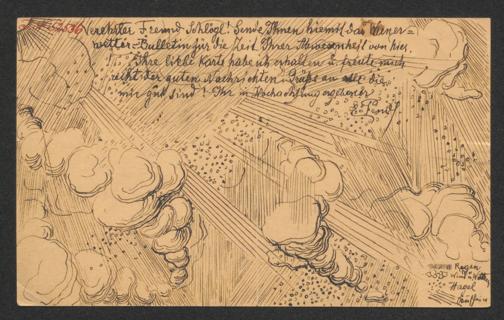 Verehrter Freund Schlögl! Sende Ihnen hiemit das Wiener=
wetter=Bulletin für die Zeit Ihrer Abwesenheit von hier.
Ihre liebe Karte habe ich erhalten u. freute mich
der guten Nachrichten. Grüße an alle die
mir gut sind! Ihr in Hochachtung ergebener
Regen
Wind u.
Hagel